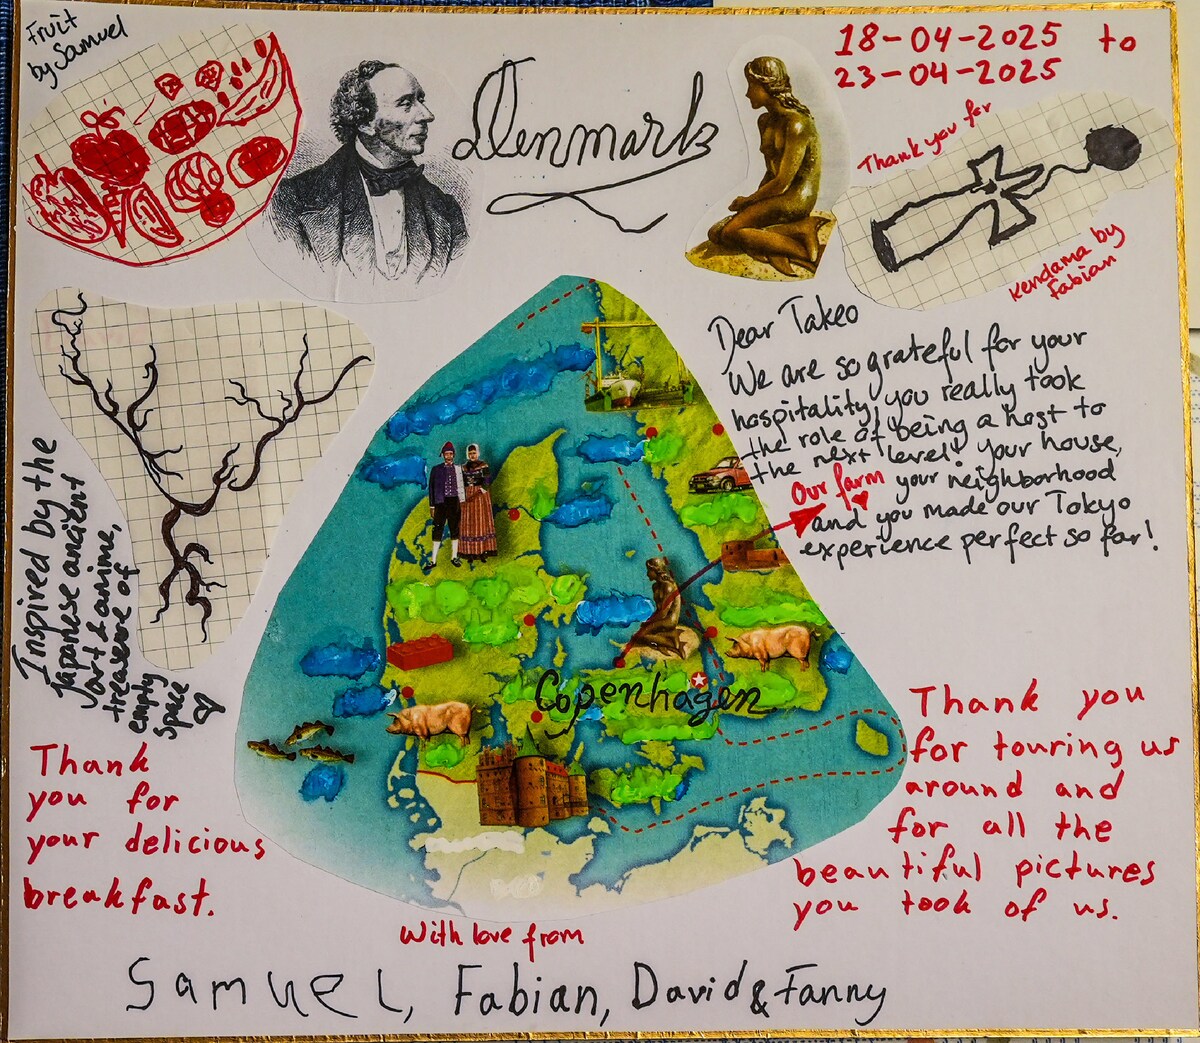 Fruit
by Samuel
Denmark
18-04-2025 to
23-04-2025
Thank you for
Kendama by
Fabian
Dear Takeo
We are so grateful for your
hospitality, you really took
the role of being a host to
the next level! your house,
your neighborhood
and you made our Tokyo
experience perfect so far!
Our farm
Inspired by the
Japanese ancient
art & anime,
treasure of
empty
space
Copenhagen
Thank
you for
your delicious
breakfast.
Thank you
for touring us
around and
for all the
beautiful pictures
you took of us.
With love from
Samuel, Fabian, David & Fanny